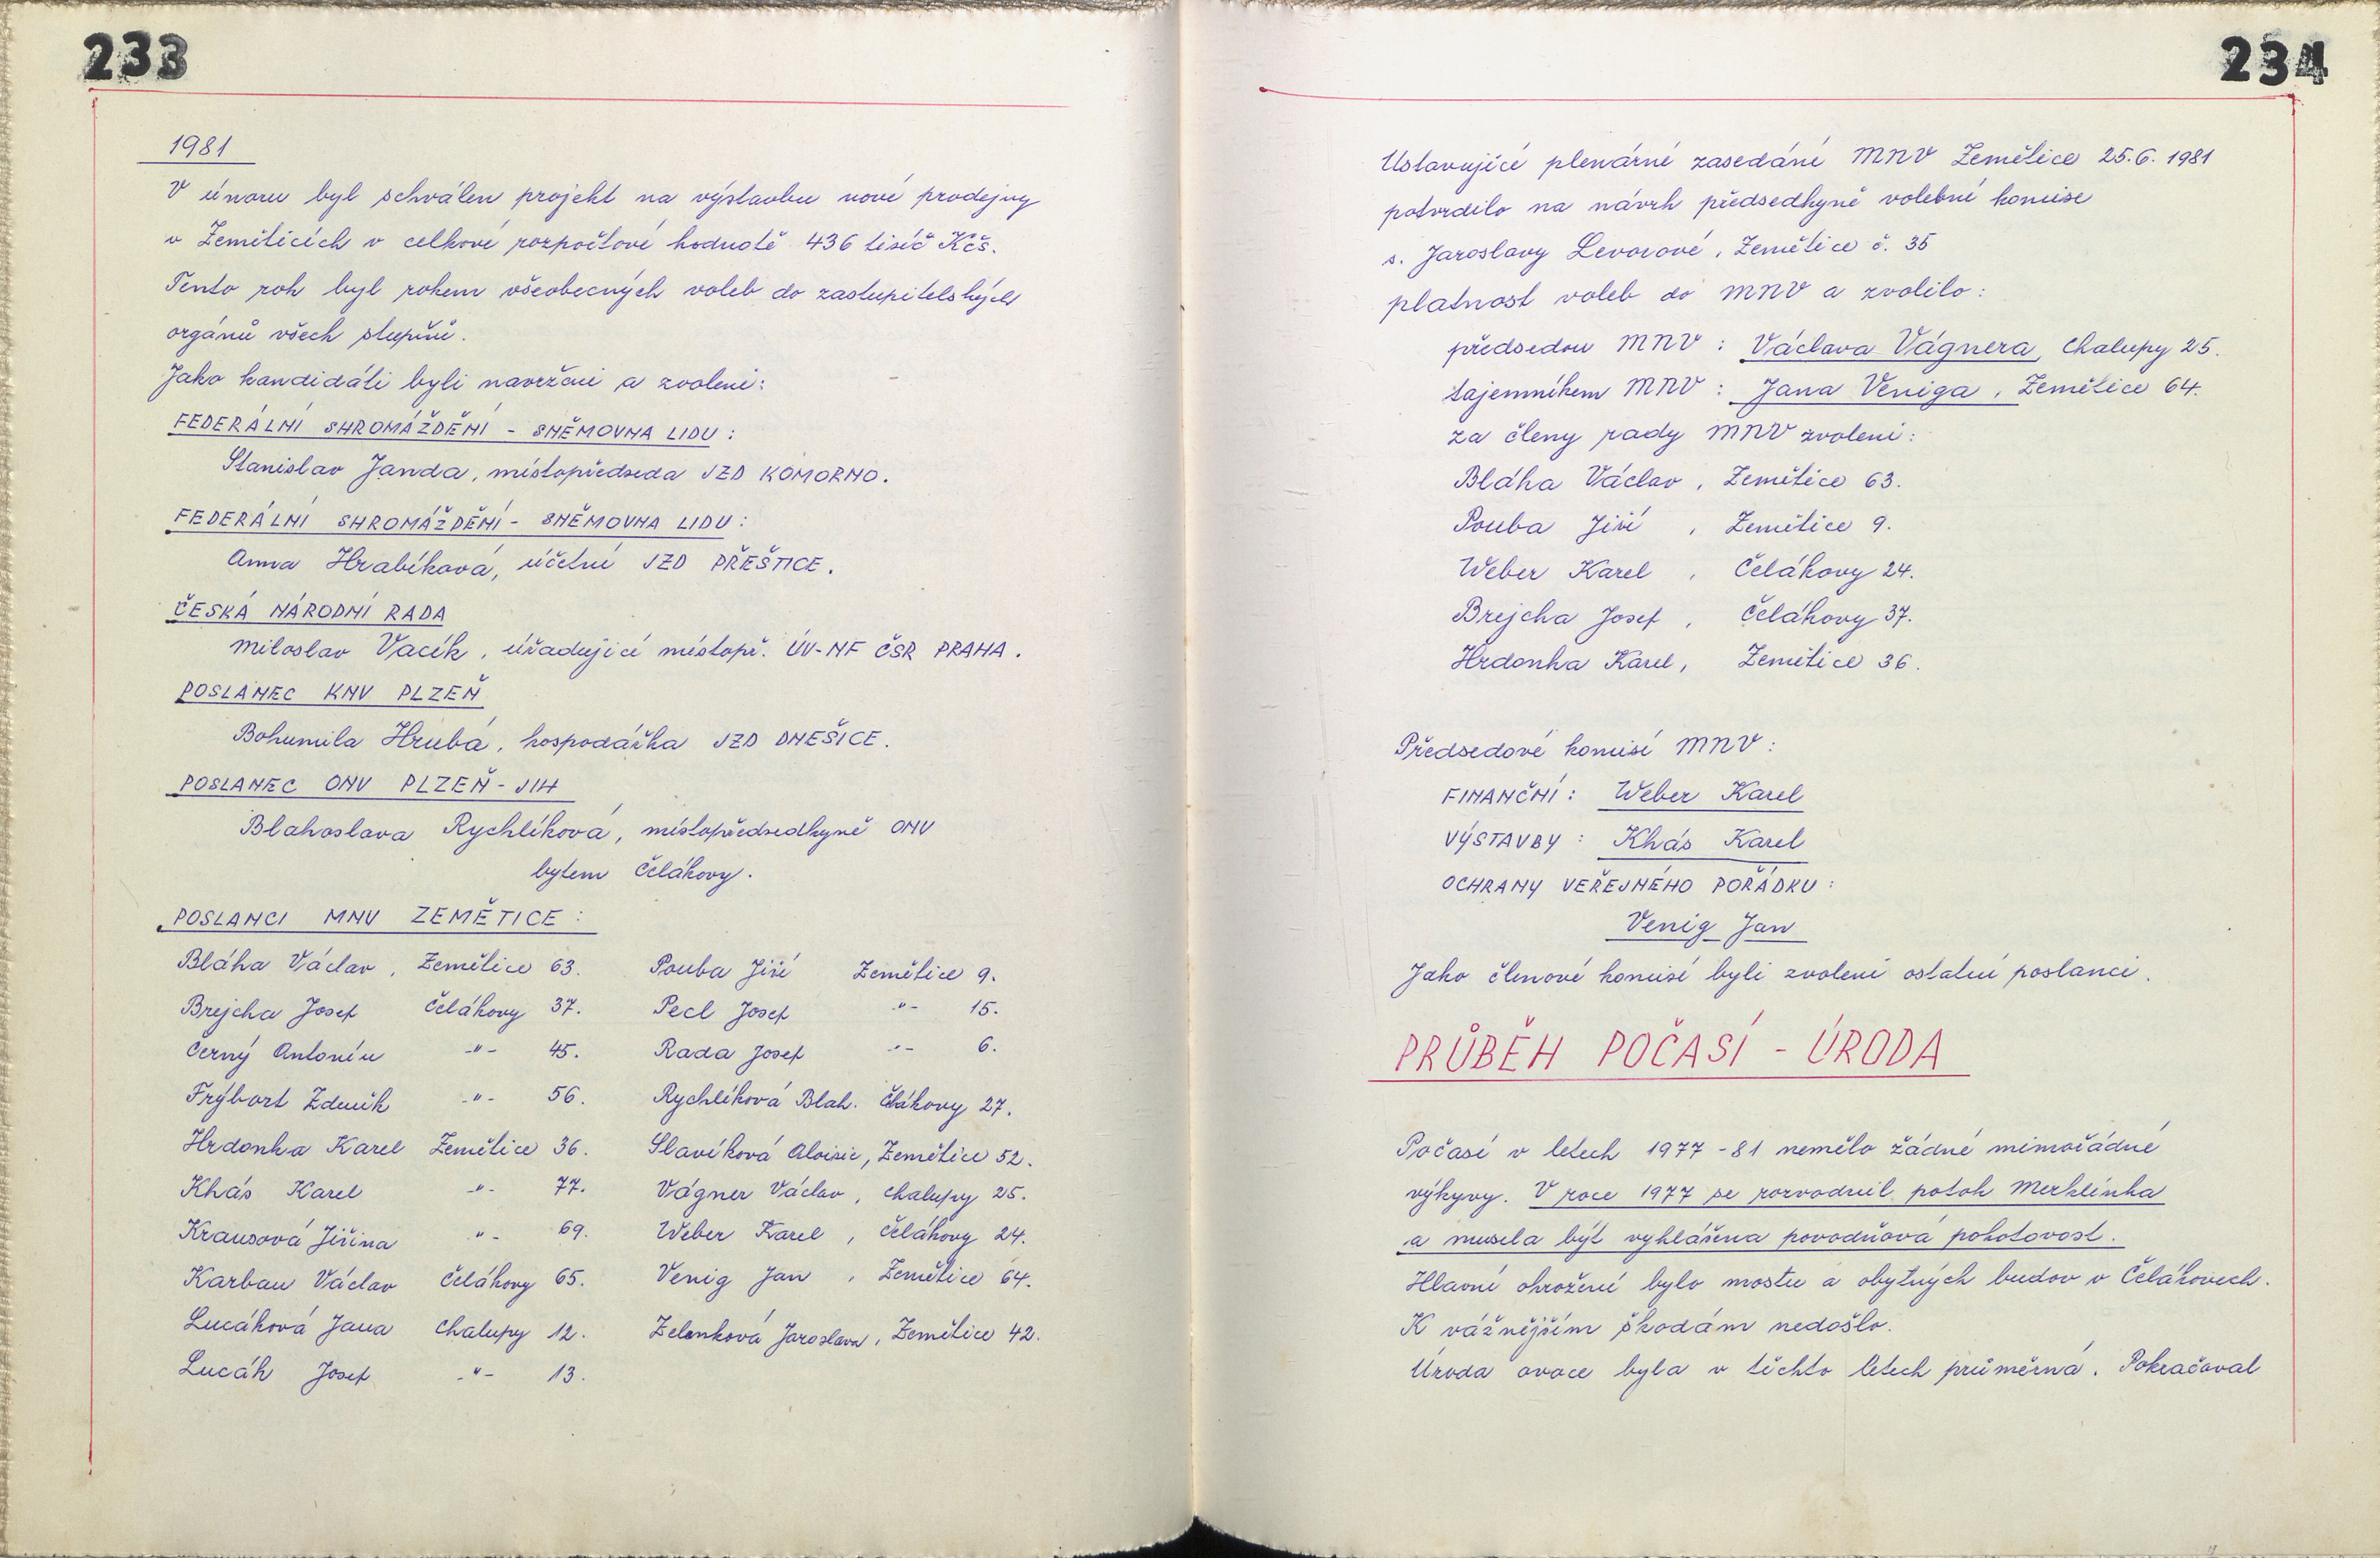 233
1981
V únoru byl schválen projekt na výstavbu nové prodejny
v Zeměticích v celkové rozpočtové hodnotě 436 tisíč Kčs.
Tento rok byl rokem všeobecných voleb do zastupitelských
orgánů všech stupňů.
Jako kandidáti byli navrženi a zvoleni:
FEDERÁLNÍ SHROMÁŽDĚNÍ - SNĚMOVNA LIDU :
Stanislav Janda, místopředseda JZD KOMORNO.
FEDERÁLNÍ SHROMÁŽDĚNÍ - SNĚMOVNA LIDU :
Anna Hrabíková, účetní JZD PŘEŠTICE.
ČESKÁ NÁRODNÍ RADA
Miloslav Vacík, úřadující místopř. ÚV-NF ČSR PRAHA.
POSLANEC KNV PLZEŇ
Bohumila Hrubá, hospodářka JZD DNEŠICE.
POSLANEC ONV PLZEŇ - JIH
Blahoslava Rychlíková, místopředsedkyně ONV
bytem Čelákovy.
POSLANCI MNV ZEMĚTICE :
Bláha Václav, Zemětice 63. Pouba Jiří Zemětice 9.
Brejcha Josef Čelákovy 37. Pecl Josef -"- 15.
Černý Antonín -"- 45. Rada Josef -"- 6.
Frýbort Zdeněk -"- 56. Rychlíková Blah. Čelákovy 27.
Hrdonka Karel Zemětice 36. Slavíková Aloisie, Zemětice 52.
Khás Karel -"- 77. Vágner Václav, Chalupy 25.
Krausová Jiřina -"- 69. Weber Karel, Čelákovy 24.
Karban Václav Čelákovy 65. Venig Jan, Zemětice 64.
Lucáková Jana Chalupy 12. Zelenková Jaroslava, Zemětice 42.
Lucák Josef -"- 13.
234
Ustavující plenárné zasedání MNV Zemětice 25.6. 1981
potvrdilo na návrh předsedkyně volební komise
s. Jaroslavy Levorové, Zemětice č. 35
platnost voleb do MNV a zvolilo:
předsedou MNV : Václava Vágnera, Chalupy 25.
tajemníkem MNV : Jana Veniga, Zemětice 64.
za členy rady MNV zvoleni:
Bláha Václav, Zemětice 63.
Pouba Jiří, Zemětice 9.
Weber Karel, Čelákovy 24.
Brejcha Josef, Čelákovy 37.
Hrdonka Karel, Zemětice 36.
Předsedové komisí MNV :
FINANČNÍ : Weber Karel
VÝSTAVBY : Khás Karel
OCHRANY VEŘEJNÉHO POŘÁDKU :
Venig Jan
Jako členové komisí byli zvoleni ostatní poslanci.
PRŮBĚH POČASÍ - ÚRODA
Počasí v letech 1977-81 nemělo žádné mimořádné
výkyvy. V roce 1977 se rozvodnil potok Merklínka
a musela být vyhlášena povodňová pohotovost.
Hlavní ohrožení bylo mostu a obytných budov v Čelákovech.
K vážnějším škodám nedošlo.
Úroda ovoce byla v těchto letech průměrná. Pokračoval